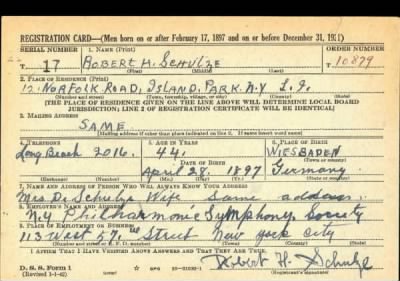 REGISTRATION CARD—(Men born on or after February 17, 1897 and on or before December 31, 1921)
SERIAL NUMBER 1. NAME (Print) ORDER NUMBER
T- 17 ROBERT H. SCHULZE T 10879
(First) (Middle) (Last)
2. PLACE OF RESIDENCE (Print)
12 NORFOLK ROAD, ISLAND PARK. N.Y L.I.
(Number and street) (Town, township, village, or city) (County) (State)
[THE PLACE OF RESIDENCE GIVEN ON THE LINE ABOVE WILL DETERMINE LOCAL BOARD
JURISDICTION; LINE 2 OF REGISTRATION CERTIFICATE WILL BE IDENTICAL]
3. MAILING ADDRESS
SAME
[Mailing address if other than place indicated on line 2. If same insert word same]
4. TELEPHONE 5. AGE IN YEARS 6. PLACE OF BIRTH
44. WIESBADEN
Long Beach 2016. DATE OF BIRTH (Town or county)
April 28. 1897 Germany
(Mo.) (Day) (Yr.) (State or country)
7. NAME AND ADDRESS OF PERSON WHO WILL ALWAYS KNOW YOUR ADDRESS
Mrs D. Schulze Wife same address
8. EMPLOYER'S NAME AND ADDRESS
N.Y Philharmonic Symphony Society
9. PLACE OF EMPLOYMENT OR BUSINESS
113 West 57. Street New York City
(Number and street or R. F. D. number) (Town) (County) (State)
I AFFIRM THAT I HAVE VERIFIED ABOVE ANSWERS AND THAT THEY ARE TRUE.
D. S. S. FORM 1 GPO Robert H. Schulze
(Revised 1-1-42) (Registrant's signature)